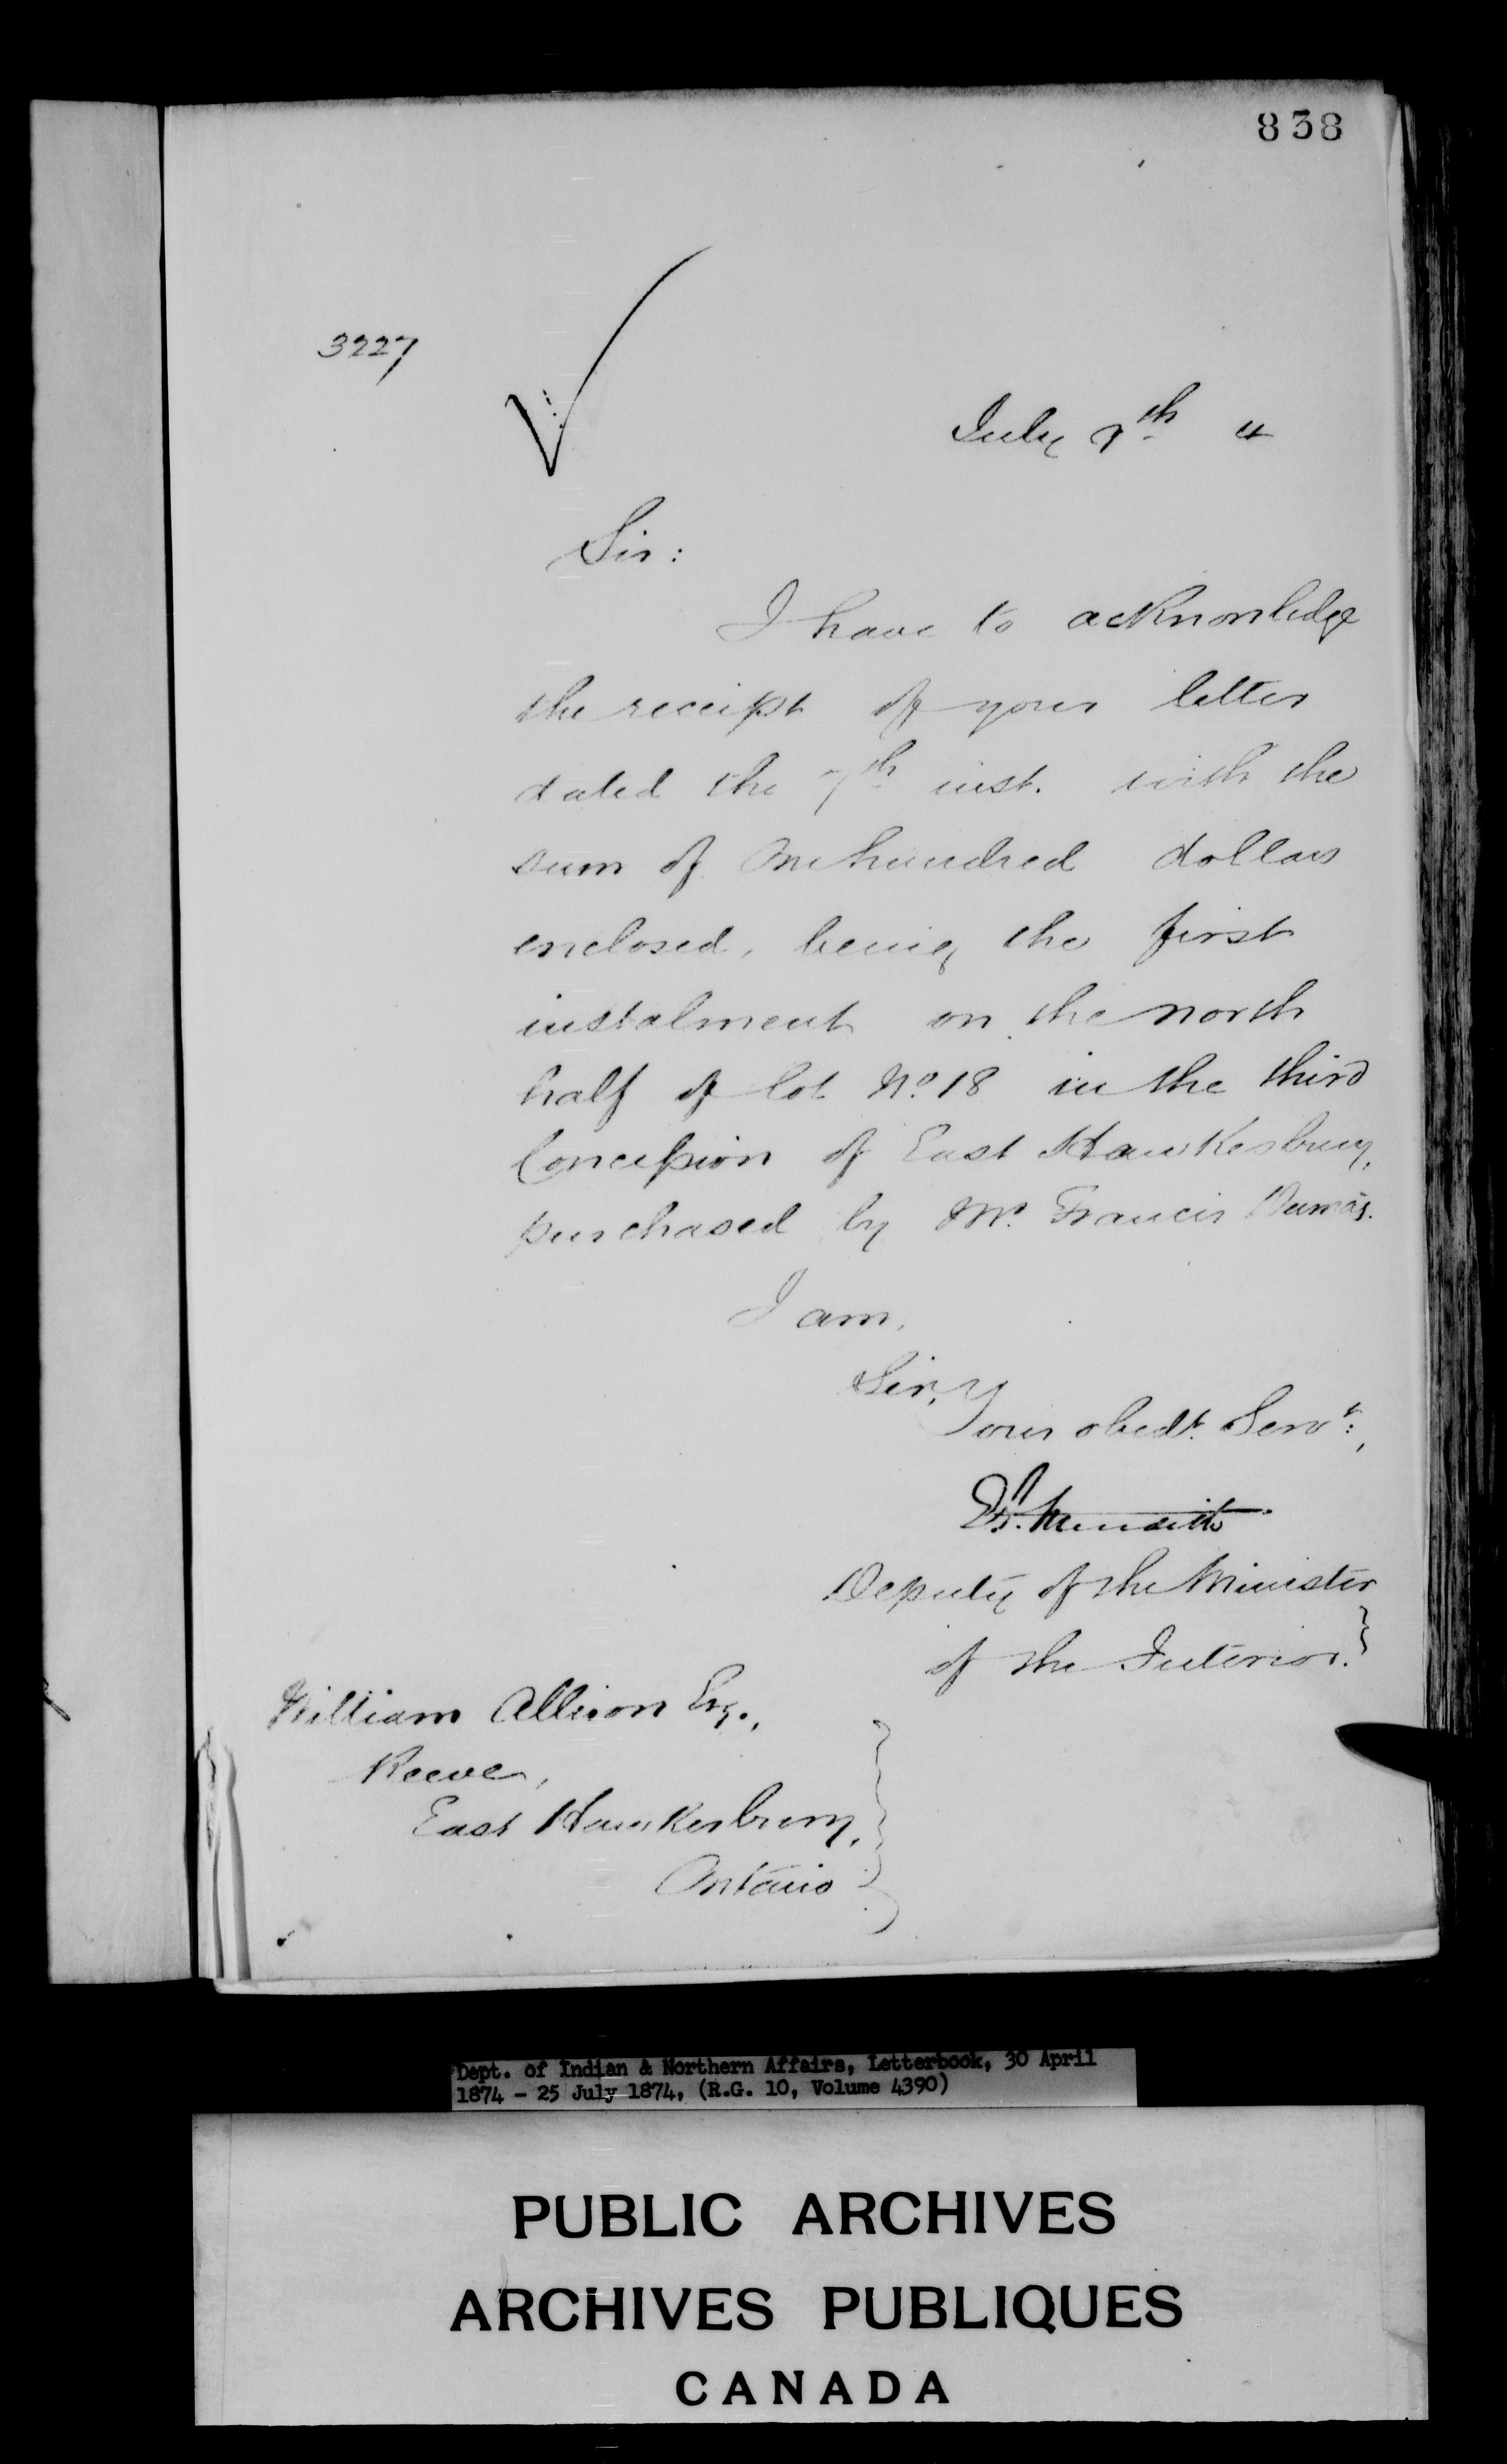 838
3227
July 9th 4
Sir:
I have to acknowledge
the receipt of your letter
dated the 7th inst. with the
sum of One hundred dollars
enclosed, being the first
instalment on the north
half of lot No. 18 in the third
Concession of East Hawkesbury,
purchased by Mr. Francis Dumas.
I am,
Sir,
Your obedt. Servt.,
Deputy of the Minister
of the Interior.
William Allison Esq.,
Reeve,
East Hawkesbury,
Ontario
Dept. of Indian & Northern Affairs, Letterbook, 30 April
1874 - 25 July 1874, (R.G. 10, Volume 4390)
PUBLIC ARCHIVES
ARCHIVES PUBLIQUES
CANADA